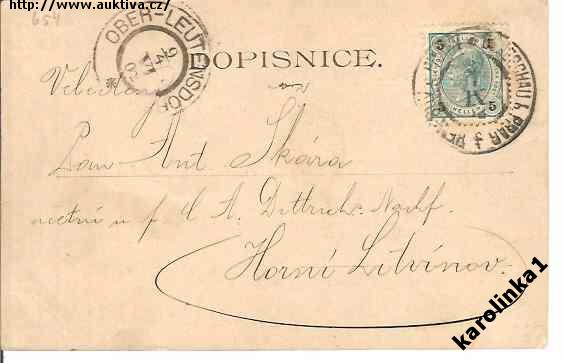 http://www.auktiva.cz/
654
OBER-LEUTENSDORF
DOPISNICE.
5 5
5 5
Pan Ant. Skára
u f. C. A. Dittrich Nachf.
Horní Litvínov.
karolinka1